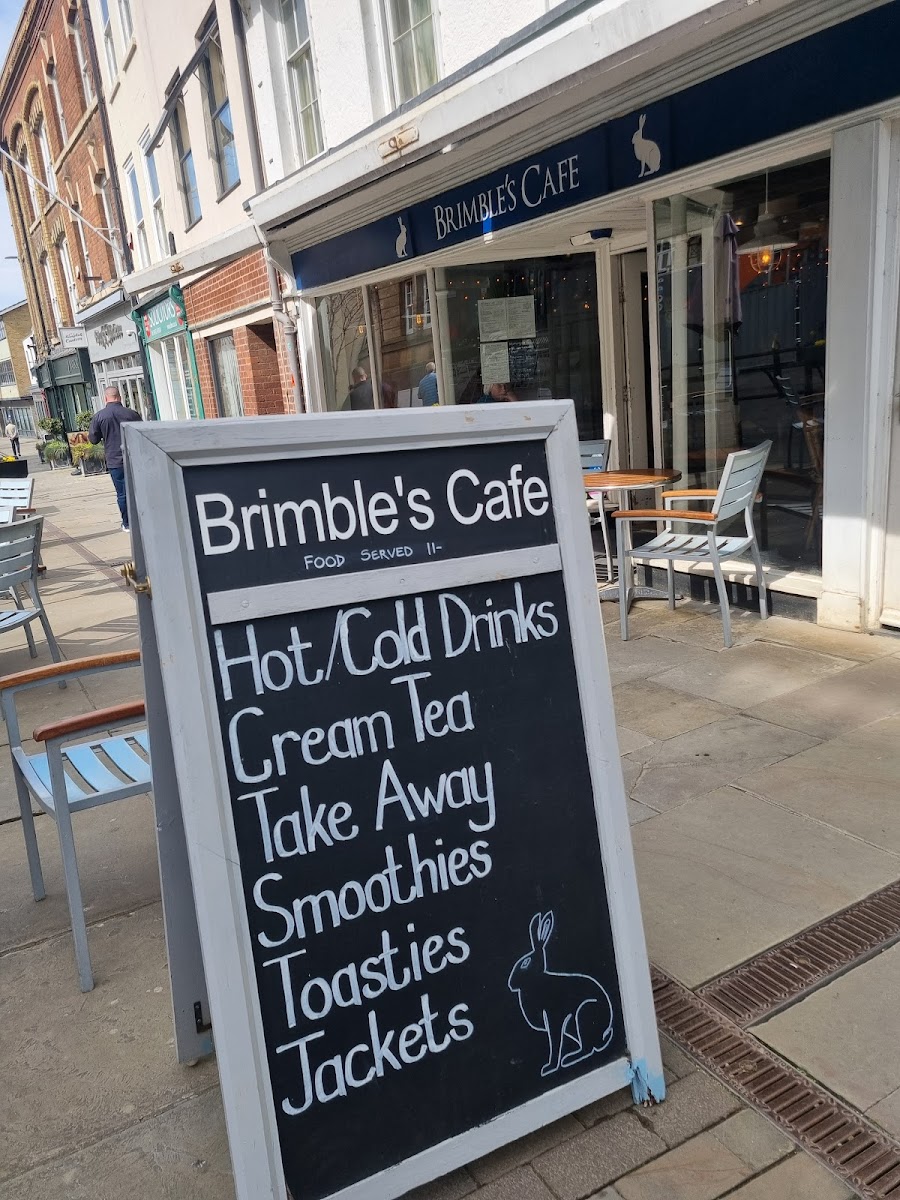 BRIMBLE'S CAFE
Brimble's Cafe
FOOD SERVED 11-
Hot/Cold Drinks
Cream Tea
Take Away
Smoothies
Toasties
Jackets